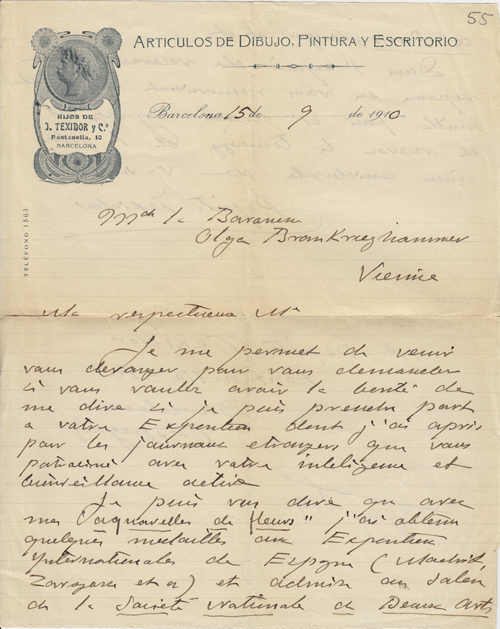 55
ARTICULOS DE DIBUJO, PINTURA Y ESCRITORIO
HIJOS DE
J. TEXIDOR y Cª
Fontanella, 10
BARCELONA
Barcelona 15 de 9 de 1910
TELÉFONO 1563
la Baronesa
Olga
Vienne
respectueuse
Je me permet de venir
vous deranger pour vous demander
si vous voulez avoir la bonté de
me dire si je puis prendre part
a votre Exposition dont j'ai apris
par les journaux etrangers, que vous
patroniné avec votre inteligence et
bienveillance active
Je puis vous dire que avec
mes "aquarelles de fleurs" j'ai obtenu
quelques medailles aux Exposition
Internationales de Espagne (Madrid,
Zaragoza et a) et admise au Salon
de la Société Nationale de Beaux Arts